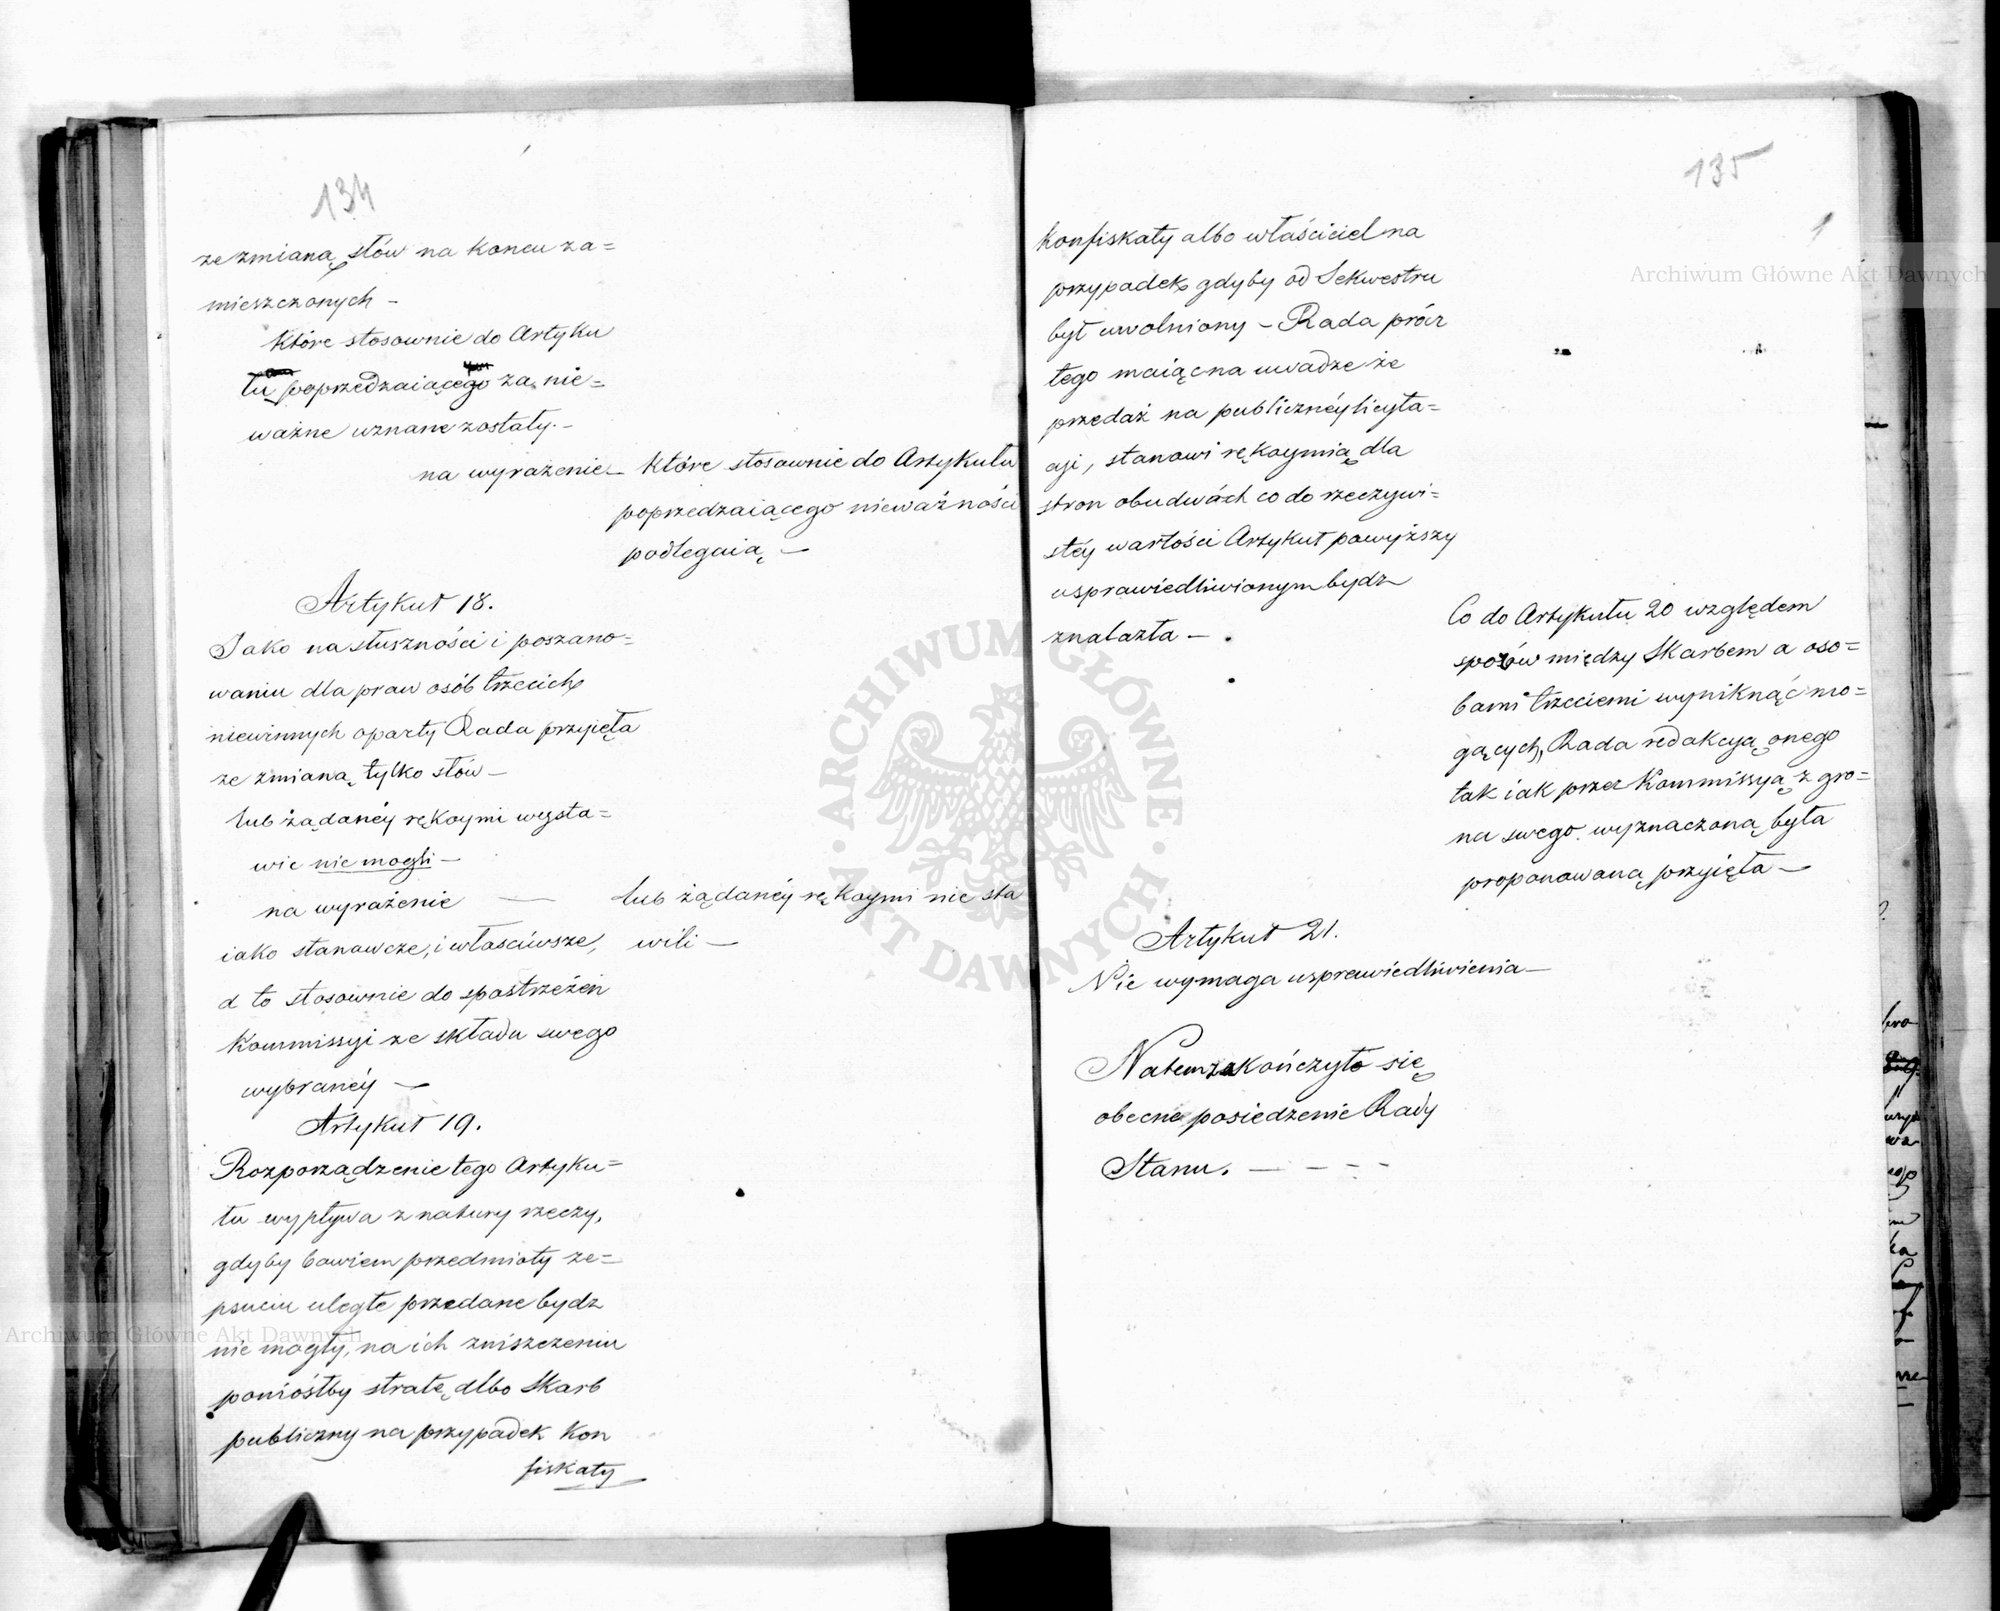 134
ze zmianą słów na końcu za=
mieszczonych –
które stosownie do Artyku
łu poprzedzaiącego za nie=
ważne uznane zostały. –
na wyrażenie – które stosownie do Artykułu
poprzedzaiącego nieważności
podlegaią –
Artykuł 18.
Jako na słuszności i poszano=
waniu dla praw osób trzecich
niewinnych oparty Rada przyięła
ze zmianą tylko słów –
lub żądanéy rękoymi wysta=
wić nie mogli –
na wyrażenie — lub żądanéy rękoymi nie sta
iako stanowcze, i właściwsze, wili –
a to stosownie do spostrzeżeń
Kommissyi ze składu swego
wybranéy –
Artykuł 19.
Rozporządzenie tego Artyku=
łu wypływa z natury rzeczy,
gdyby bowiem przedmioty ze=
psuciu uległe przedane bydz
nie mogły, na ich zniszczeniu
poniósłby stratę albo Skarb
publiczny na przypadek Kon
fiskaty
135
1
Konfiskaty albo właściciel na
przypadek gdyby od Sekwestru
był uwolniony – Rada prócz
tego maiąc na uwadze że
przedaż na publicznéy licyta=
cyi, stanowi rękoymią dla
stron obudwóch co do rzeczywi=
stéy wartości Artykuł powyższy
usprawiedliwionym bydz
znalazła –
Co do Artykułu 20 względem
sporów między Skarbem a oso=
bami trzeciemi wyniknąć mo=
gących, Rada redakcyą onego
tak iak przez Kommissyą z gro=
na swego wyznaczoną była
proponowaną przyięła –
Artykuł 21.
Nie wymaga usprawiedliwienia –
Na tem zakończyło się
obecne posiedzenie Rady
Stanu. – – – –
Archiwum Główne Akt Dawnych
Archiwum Główne Akt Dawnych
ARCHIWUM GŁÓWNE · AKT DAWNYCH ·